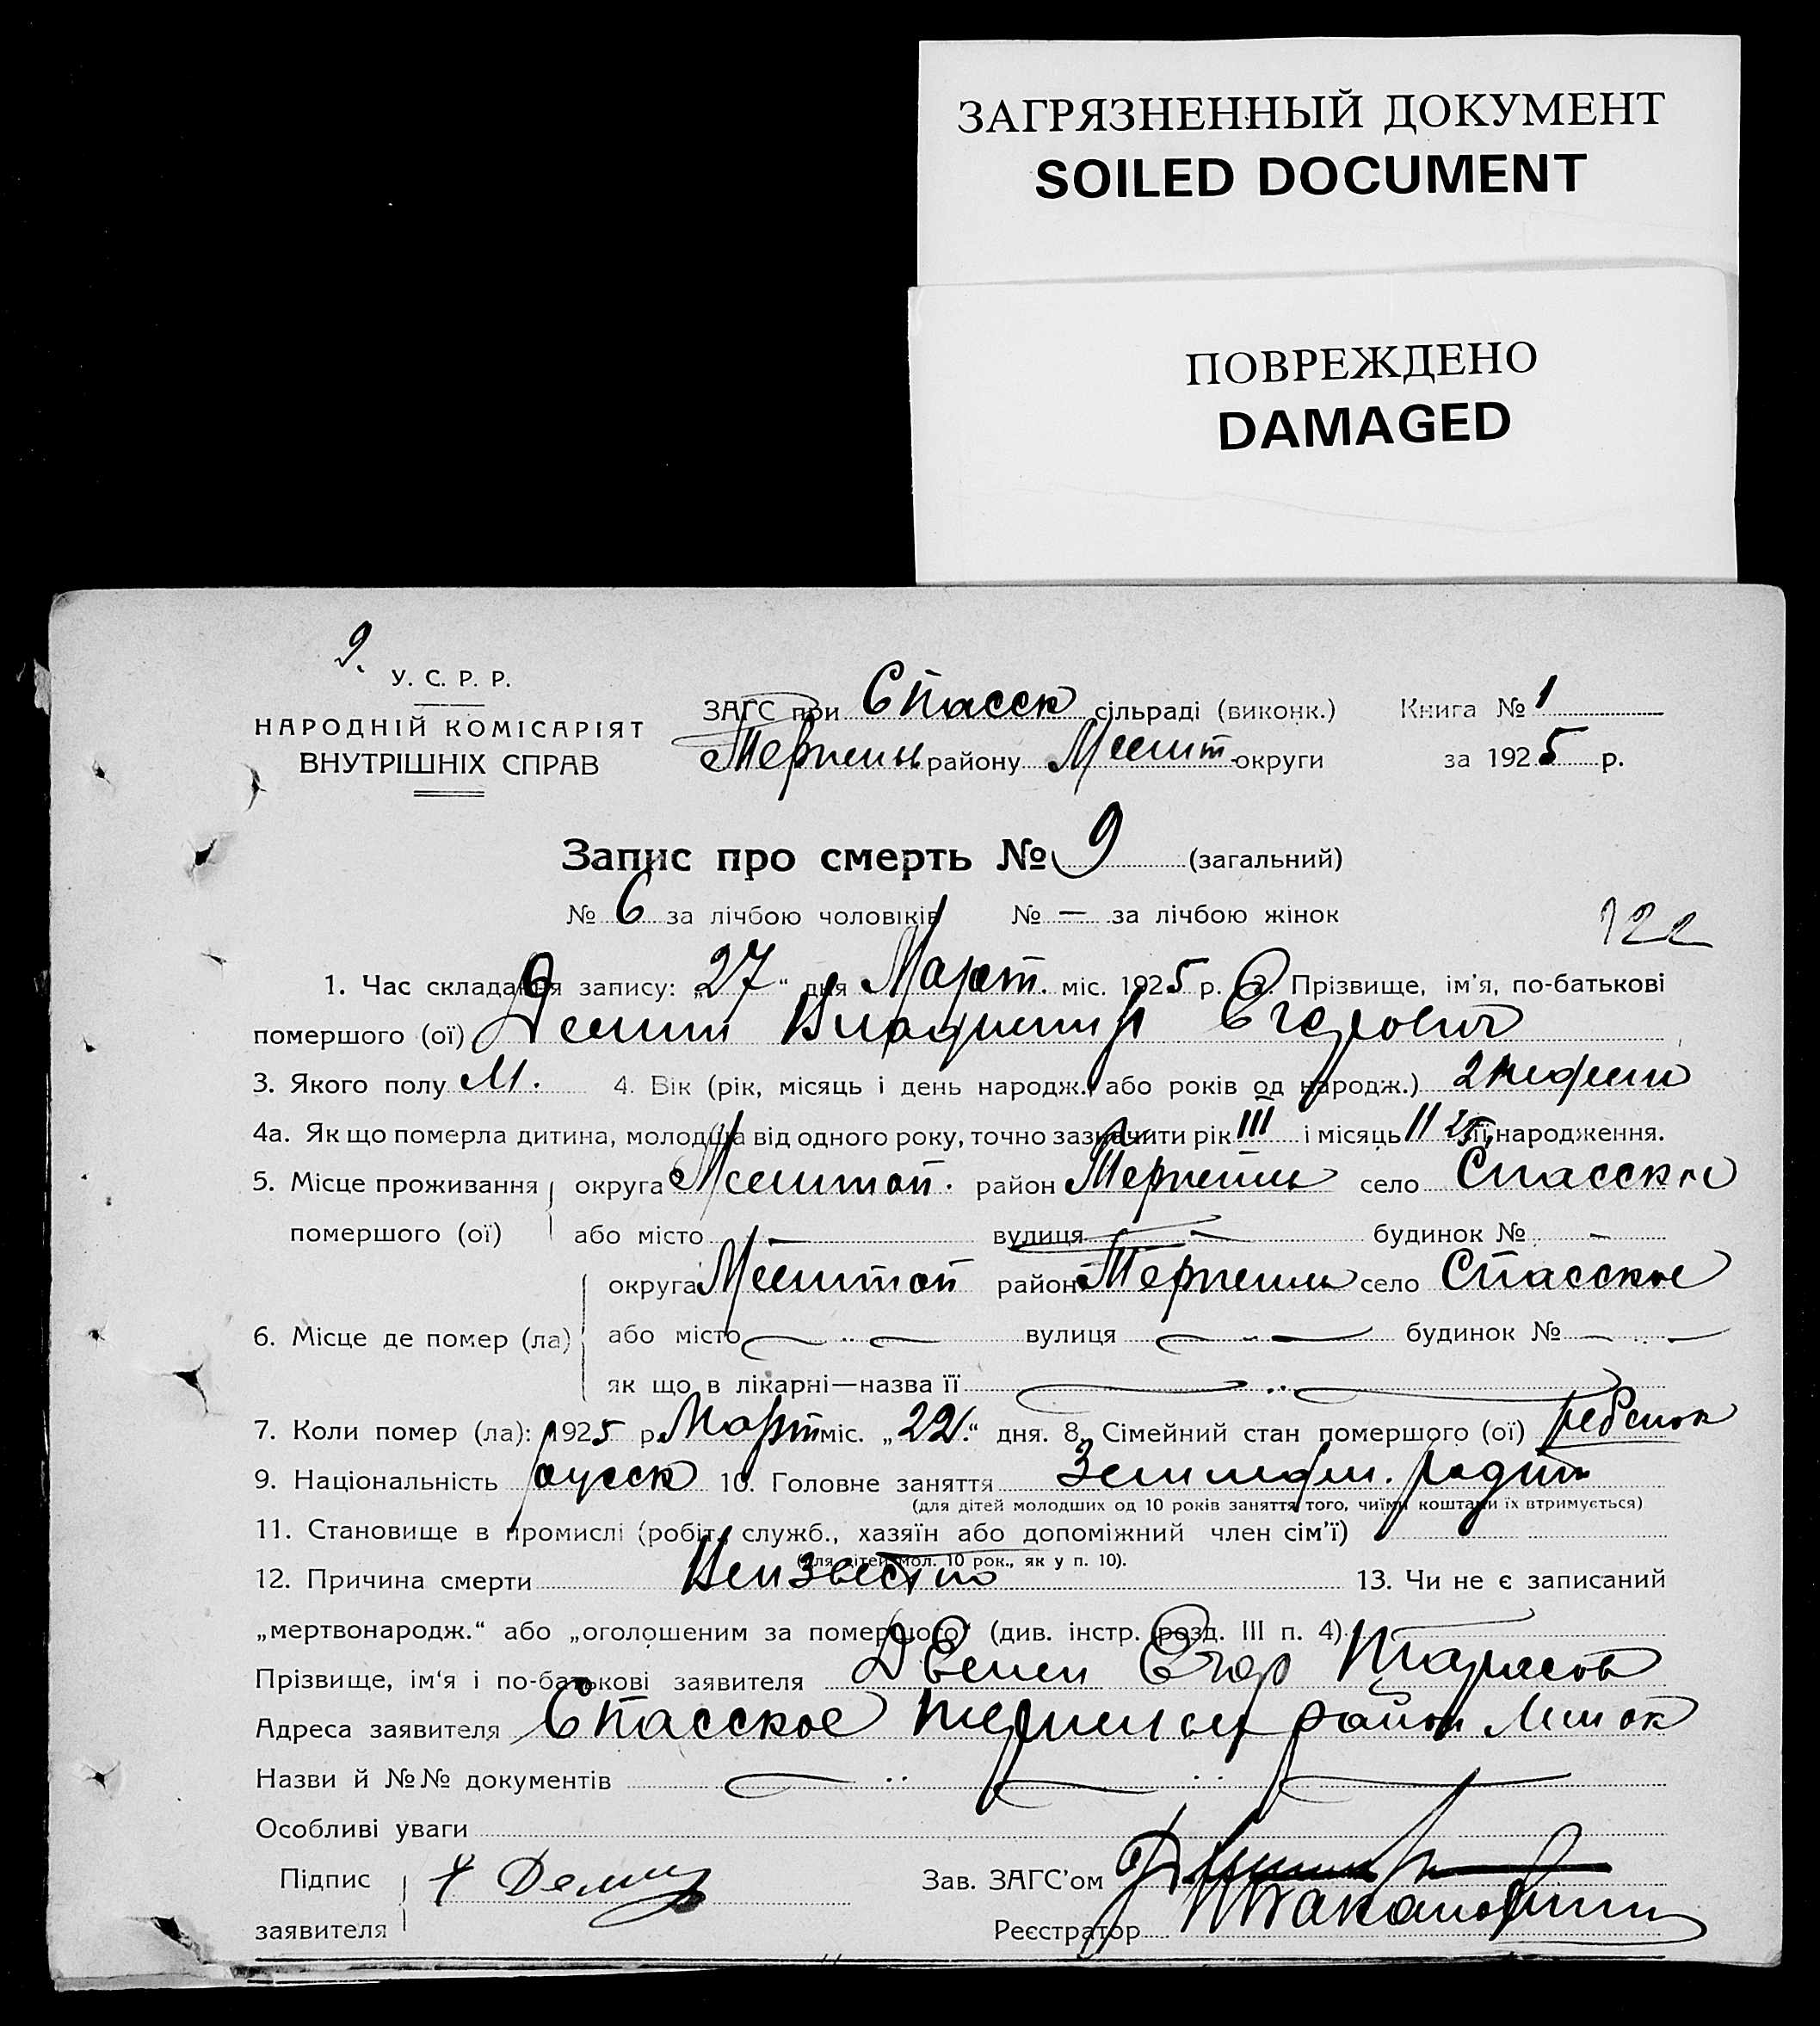 ЗАГРЯЗНЕННЫЙ ДОКУМЕНТ
SOILED DOCUMENT
ПОВРЕЖДЕНО
DAMAGED
9.
У. С. Р. Р.
НАРОДНІЙ КОМІСАРІЯТ
ВНУТРІШНІХ СПРАВ
ЗАГС при Спасск сільраді (виконк.) Книга № 1
району округи за 1925 р.
Запис про смерть № 9 (загальний)
№ 6 за лічбою чоловіків № — за лічбою жінок
122
1. Час складання запису: „27“ дня Март. міс. 1925 р. 2. Прізвище, ім'я, по-батькові
помершого (ої) Демин Владимир Егорович
3. Якого полу М. 4. Вік (рік, місяць і день народж. або років од народж.) 2 недели
4а. Як що померла дитина, молодша від одного року, точно зазначити рік III і місяць 11 25 її народження.
5. Місце проживання округа Мелитоп. район село Спасское
помершого (ої) або місто — вулиця — будинок № —
округа Мелитоп район село Спасское
6. Місце де помер (ла) або місто вулиця будинок №
як що в лікарні—назва її
7. Коли помер (ла): 1925 р. Март міс. „22“ дня. 8. Сімейний стан помершого (ої) ребенок
9. Національність русск 10. Головне заняття родит
(для дітей молодших од 10 років заняття того, чиїми коштами їх втримується)
11. Становище в промислі (робіт., служб., хазяїн або допоміжний член сім'ї)
(для дітей мол. 10 рок., як у п. 10).
12. Причина смерти Неизвестно 13. Чи не є записаний
„мертвонародж.“ або „оголошеним за помершого“ (див. інстр. розд. III п. 4)
Прізвище, ім'я і по-батькові заявителя Егор Тарасов
Адреса заявителя Спасское район
Назви й №№ документів
Особливі уваги
Підпис заявителя Демин
Зав. ЗАГС'ом
Реєстратор